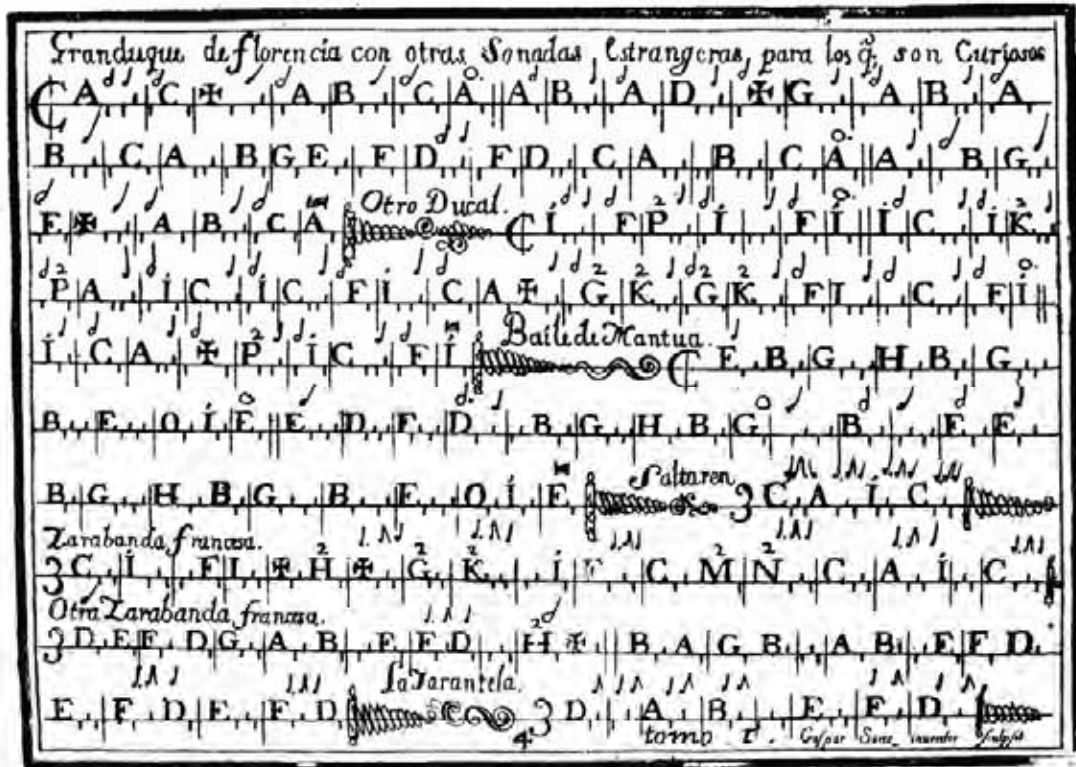 Granduque de florencia con otras Sonadas, Estrangeras, para los q̃. son Curiosos
C A C ✠ A B C A A B A D ✠ G A B A
B C A B G E F D F D C A B C A A B G
E ✠ A B C A Otro Ducal. C Í F P² Í F Í Í C Í K²
P² A Í C Í C F Í C A ✠ G² K² G² K² F I C F Í
Í C A ✠ P² Í C F Í Baile de Mantua. C E B G H B G
B E O Í E E D F D B G H B G B E E
B G H B G B E O Í E Saltaren 3 C A Í C
Zarabanda francesa.
3 C Í F I ✠ H² ✠ G² K² Í F C M² N² C A Í C
Otra Zarabanda francesa.
3 D E F D G A B E F D H² ✠ B A G B A B E F D
E F D E F D La Tarantela. 3 D A B E F D
4 tomo I. Gaspar Sanz inventor sculpsit